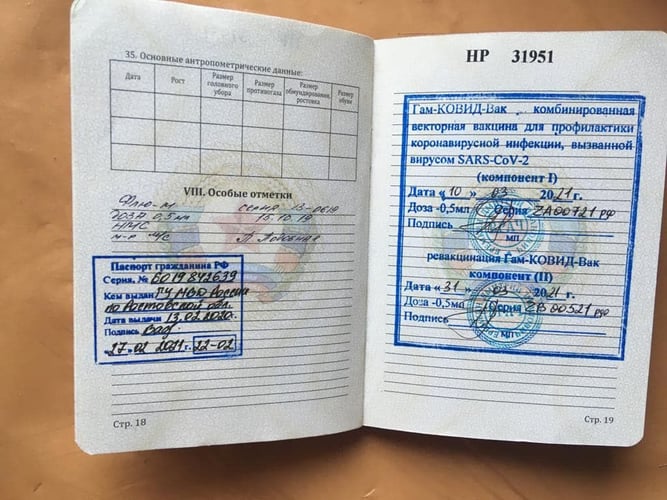 35. Основные антропометрические данные:
Дата
Рост
Размер головного убора
Размер противогаза
Размер обмундирования, ростовка
Размер обуви
VIII. Особые отметки
Флю-М серия 13-0619
доза 0,5 мл 15.10.19
НМС
м-р м/с
Паспорт гражданина РФ
Серия, № 6019 842639
Кем выдан: ГУ МВД России
по Ростовской обл.
Дата выдачи 13.02.2020г.
Подпись
«27» 02 2021 г. 22-02
Стр. 18
НР 31951
Гам-КОВИД-Вак , комбинированная
векторная вакцина для профилактики
коронавирусной инфекции, вызванной
вирусом SARS-CoV-2
(компонент I)
Дата «10» 03 2021 г.
Доза -0,5мл серия
Подпись
МП
ревакцинация Гам-КОВИД-Вак
компонент (II)
Дата «31» 03 2021 г.
Доза -0,5мл серия
Подпись
МП
Стр. 19